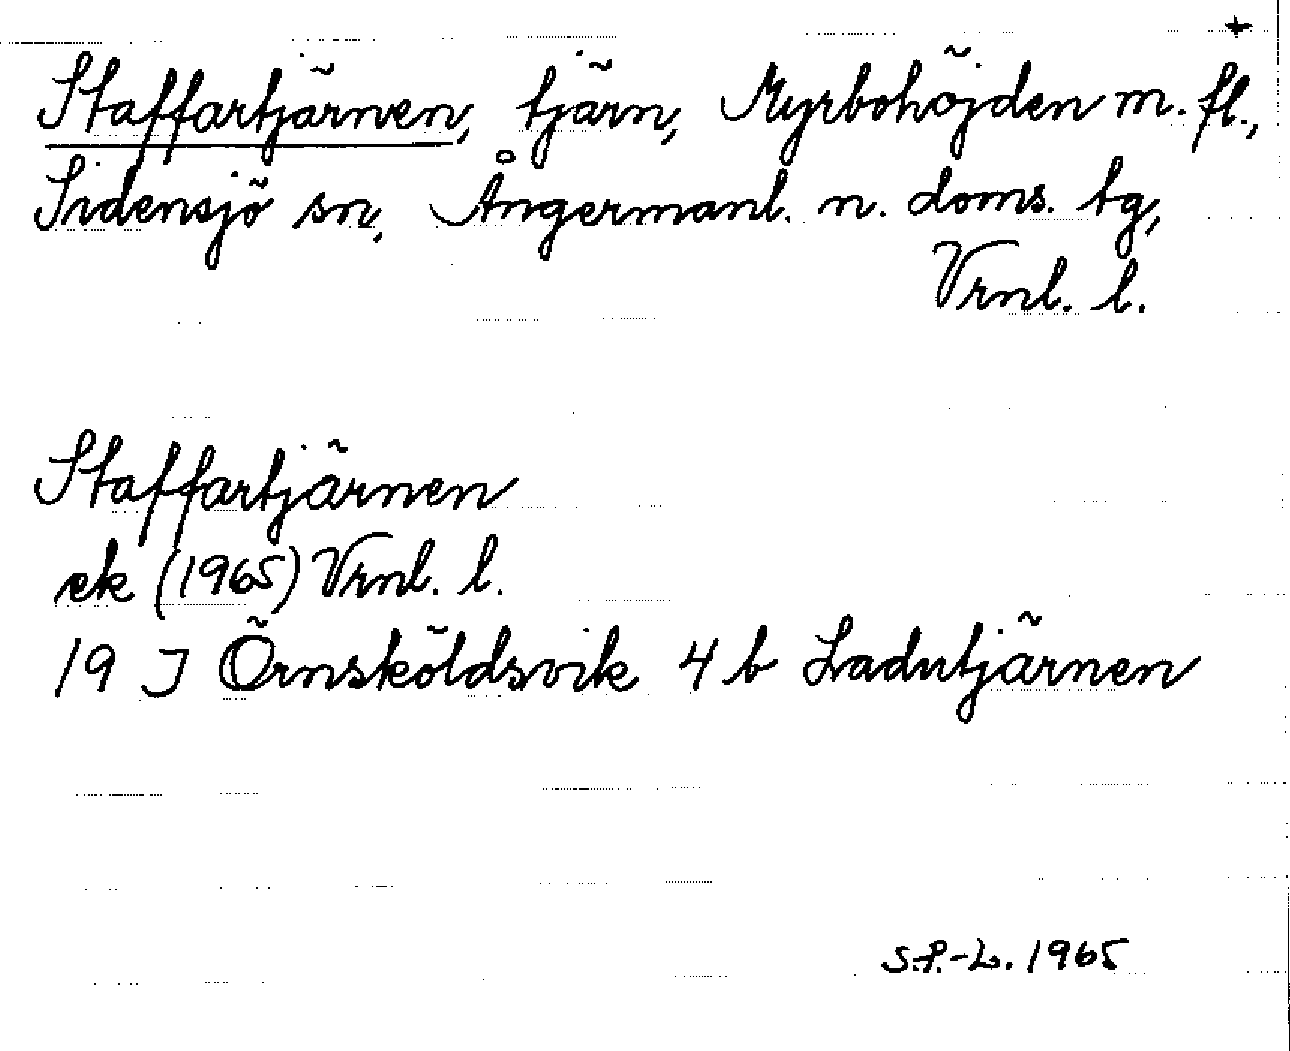 +
Staffartjärnen, tjärn, Myrbohöjden m. fl.,
Sidensjö sn, Ångermanl. n. doms. tg,
Vrnl. l.
Staffartjärnen
ek (1965) Vrnl. l.
19 J Örnsköldsvik 4 b Ladutjärnen
S.P.-L. 1965